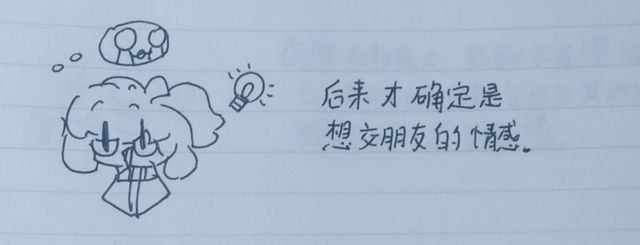 后来才确定是
想交朋友的情感。